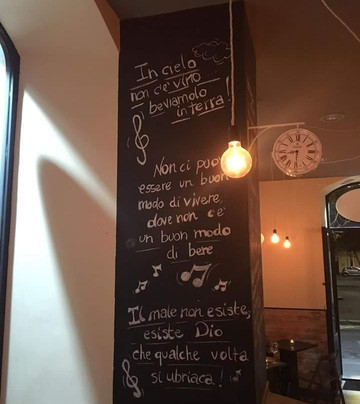 In cielo
non c'e' vino
beviamolo
in terra!
Non ci può
essere un buon
modo di vivere,
dove non c'e'
un buon modo
di bere
Il male non esiste,
esiste Dio
che qualche volta
si ubriaca!